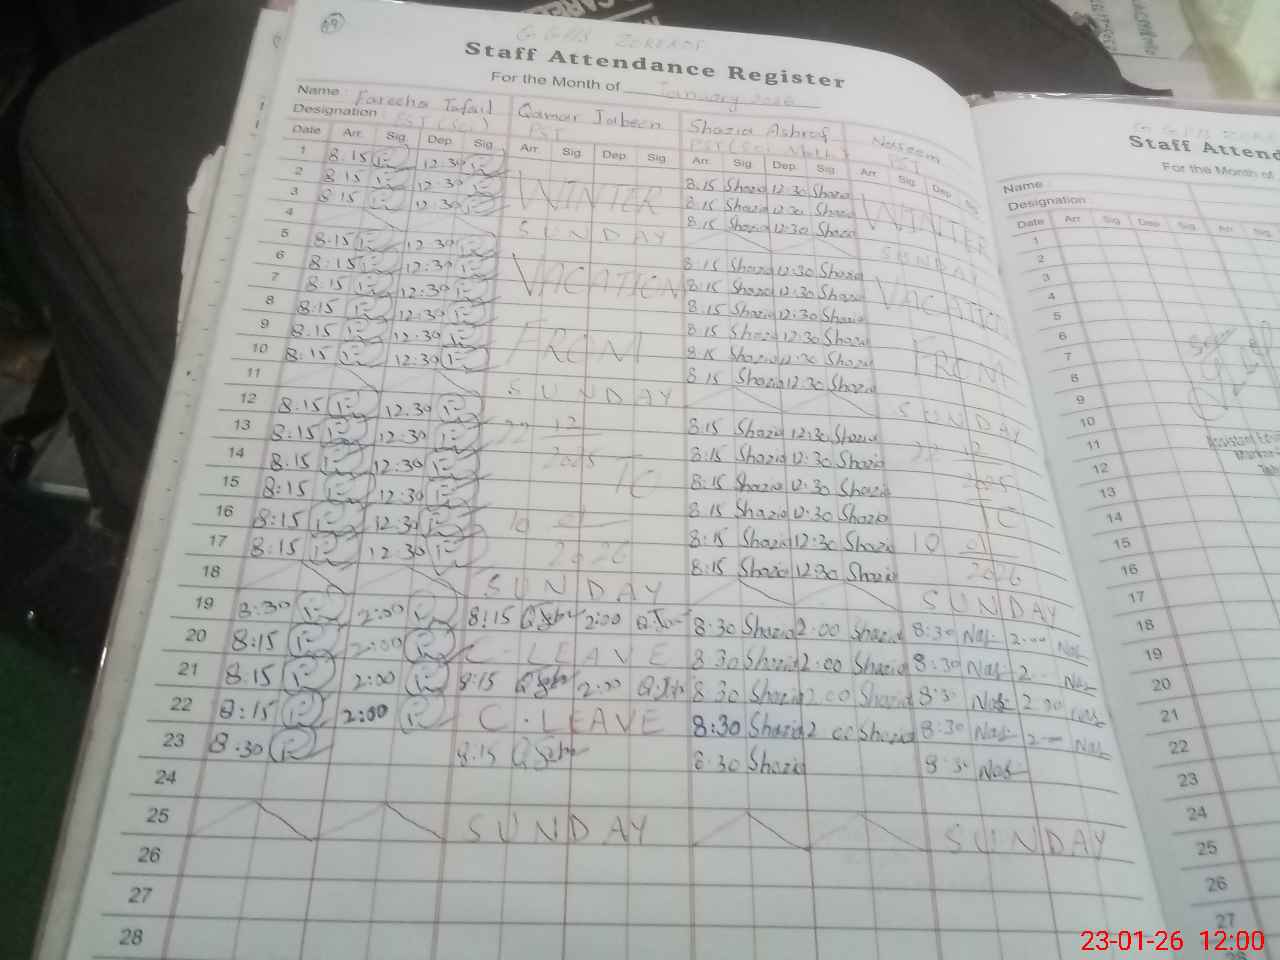 69
Staff Attendance Register
For the Month of January 2026
Name : Fareeha Tafail Qamar Jabeen Shazia Ashraf Naseem
Designation : PST (Sci) PST PST (Sci Math) PST
Date Arr. Sig. Dep. Sig. Arr. Sig. Dep. Sig. Arr. Sig. Dep. Sig. Arr. Sig. Dep. Sig.
1 8:15 12:30 8.15 Shazia 12.30 Shazia
2 8:15 12:30 WINTER 8.15 Shazia 12.30 Shazia WINTER
3 8:15 12:30 8.15 Shazia 12:30 Shazia
4 SUNDAY SUNDAY
5 8:15 12:30 8.15 Shazia 12.30 Shazia
6 8:15 12:30 VACATION 8:15 Shazia 12.30 Shazia VACATION
7 8:15 12:30 8.15 Shazia 12.30 Shazia
8 8:15 12:30 8.15 Shazia 12:30 Shazia
9 8:15 12:30 FROM 8.15 Shazia 12:30 Shazia FROM
10 8:15 12:30 8.15 Shazia 12:30 Shazia
11 SUNDAY SUNDAY
12 8:15 12:30 22 12 8.15 Shazia 12:30 Shazia
13 8:15 12:30 2025 8:15 Shazia 12.30 Shazia 22 12
14 8:15 12:30 TO 8:15 Shazia 12.30 Shazia 2025
15 8:15 12:30 8.15 Shazia 12.30 Shazia TO
16 8:15 12:30 10 01 8:15 Shazia 12:30 Shazia 10 01
17 8:15 12:30 2026 8:15 Shazia 12:30 Shazia 2026
18 SUNDAY SUNDAY
19 8:30 2:00 8:15 2:00 8.30 Shazia 2.00 Shazia 8:30 Nas 2:00 Nas
20 8:15 2:00 C. LEAVE 8.30 Shazia 2:00 Shazia 8:30 Nas 2 Nas
21 8.15 2:00 8:15 2:00 8.30 Shazia 2.00 Shazia 8:30 Nas 2 00 Nas
22 8:15 2:00 C. LEAVE 8:30 Shazia 2 00 Shazia 8:30 Nas 2 Nas
23 8:30 8.15 8:30 Shazia 8:30 Nas
24
25 SUNDAY SUNDAY
26
27
28
Staff Attend
For the Month of
Name
Designation
Date Arr. Sig. Dep. Sig. Arr. Sig.
1
2
3
4
5
6
7
8
9
10
11
12
13
14
15
16
17
18
19
20
21
22
23
24
25
26
27
28
23-01-26 12:00